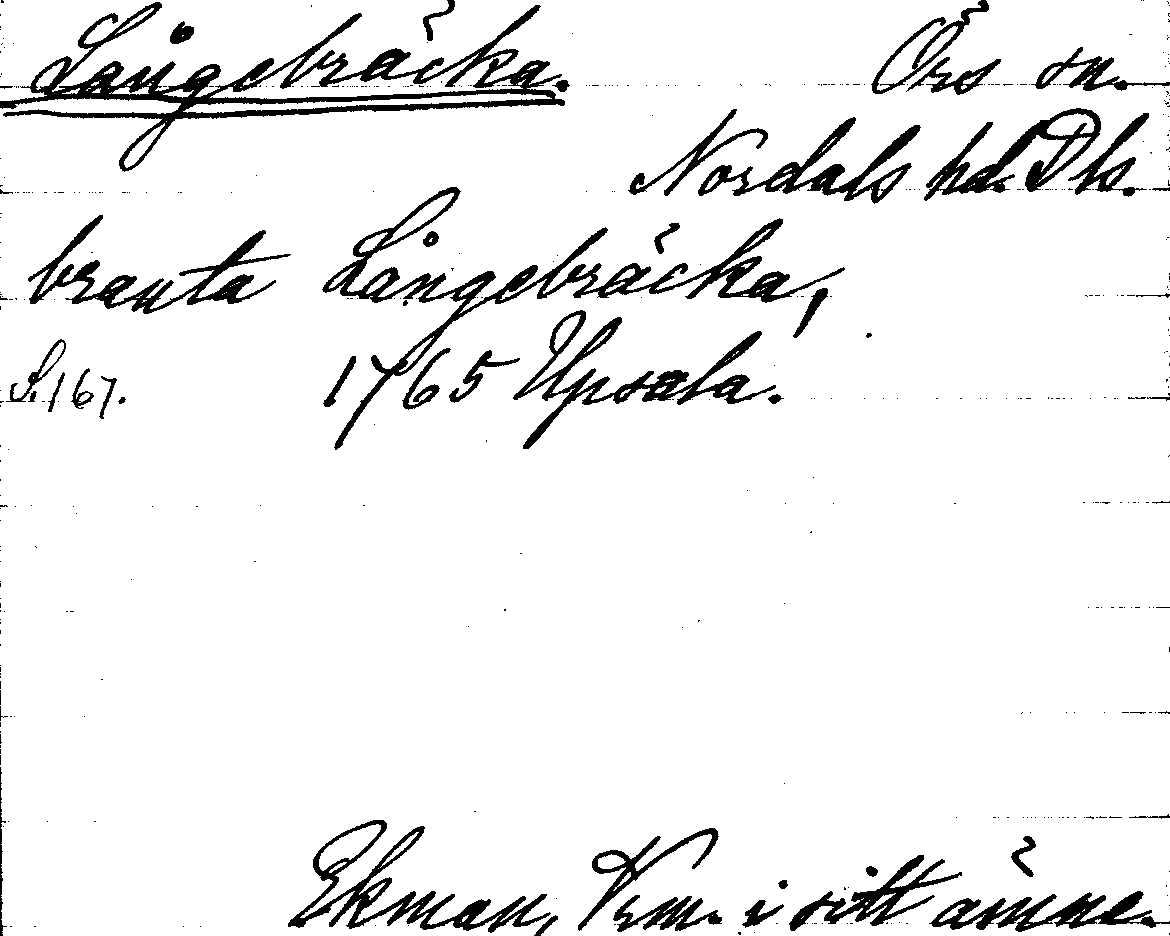 Långebräcka. Örs sn.
Nordals hd. Dls.
branta Långebräcka,
S. 167. 1765 Upsala.
Ekman, Vrm. i sitt ämne.